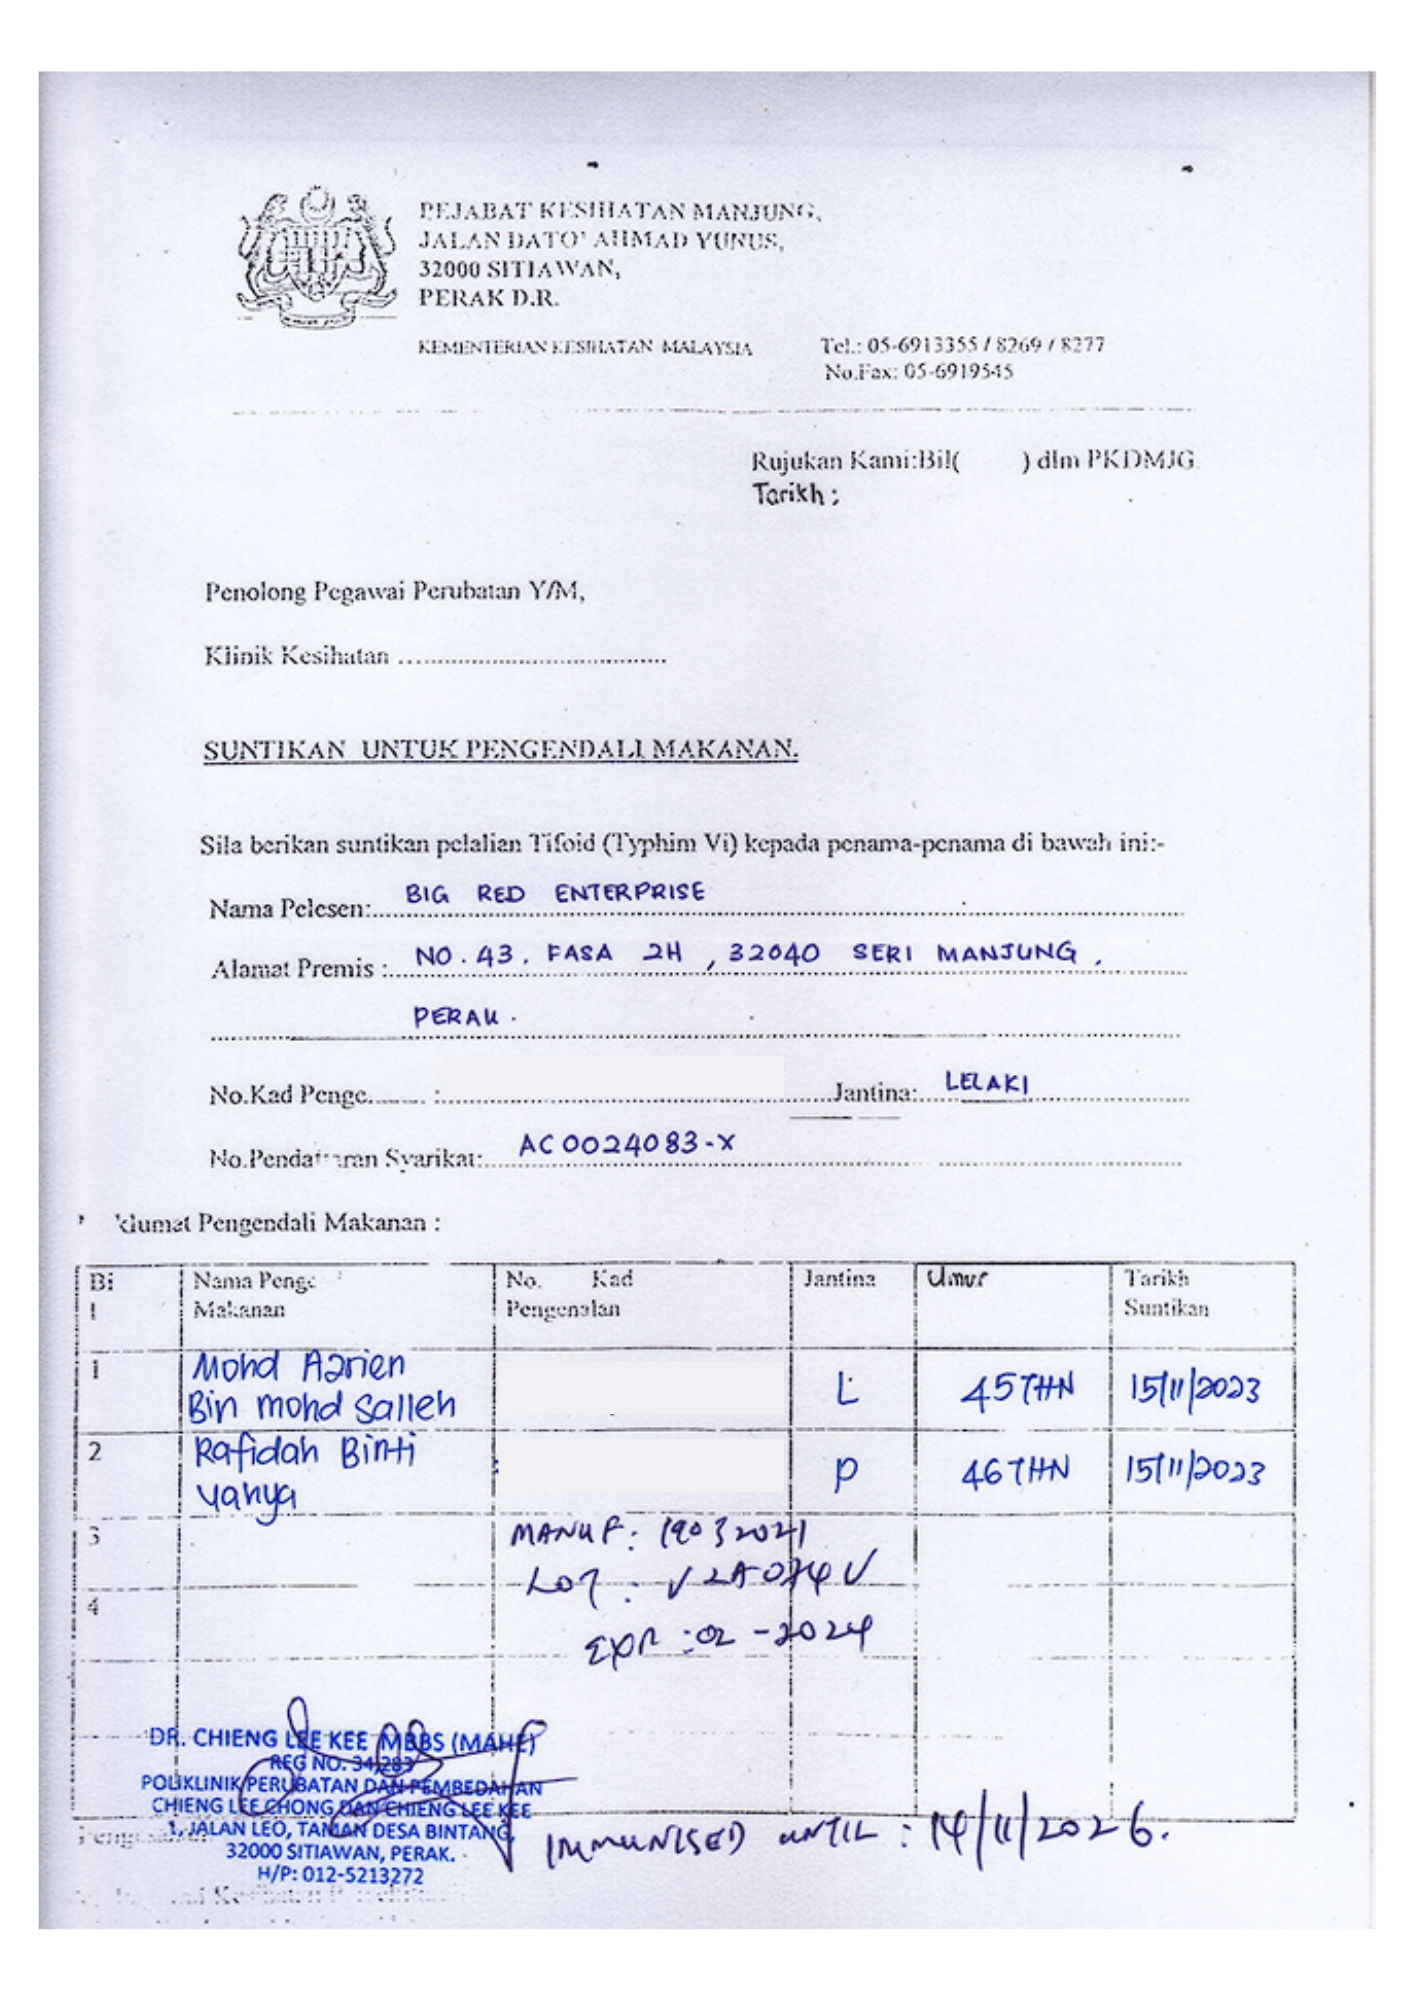 PEJABAT KESIHATAN MANJUNG,
JALAN DATO' AHMAD YUNUS,
32000 SITIAWAN,
PERAK D.R.
KEMENTERIAN KESIHATAN MALAYSIA
Tel.: 05-6913355 / 8269 / 8277
No.Fax: 05-6919545
Rujukan Kami:Bil( ) dlm PKDMJG.
Tarikh :
Penolong Pegawai Perubatan Y/M,
Klinik Kesihatan ........................................
SUNTIKAN UNTUK PENGENDALI MAKANAN.
Sila berikan suntikan pelalian Tifoid (Typhim Vi) kepada penama-penama di bawah ini:-
Nama Pelesen: BIG RED ENTERPRISE
Alamat Premis : NO. 43, FASA 2H , 32040 SERI MANJUNG ,
PERAK .
No.Kad Penge........ : Jantina: LELAKI
No.Pendaftaran Syarikat: AC0024083-X
klumat Pengendali Makanan :
Bi
l
Nama Penge
Makanan
No. Kad
Pengenalan
Jantina
Umur
Tarikh
Suntikan
1 Mohd Azrien
Bin mohd Salleh
L 45 THN 15/11/2023
2 Rafidah Binti
Yahya
P 46 THN 15/11/2023
3
MANUF: 19032021
LOT : V2A074V
4
EXP : 02-2024
DR. CHIENG LEE KEE MBBS (MAHE)
REG NO. 34283
POLIKLINIK PERUBATAN DAN PEMBEDAHAN
CHIENG LEE CHONG DAN CHIENG LEE KEE
1, JALAN LEO, TAMAN DESA BINTANG,
32000 SITIAWAN, PERAK.
H/P: 012-5213272
IMMUNISED UNTIL : 14/11/2026.